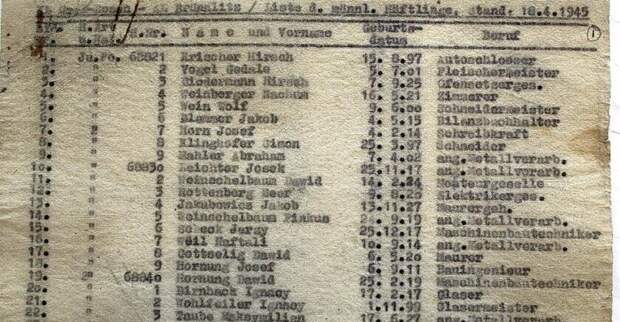 KL Gross-Rosen - AL Brünnlitz / Liste d. männl. Häftlinge, stand. 18.4.1945
1
H.Art H.Nr. Name und Vorname Geburts- Beruf
u.Nat. datum
1. Ju.Po. 68821 Krischer Hirsch 15. 8.97 Autoschlosser
2. " 2 Vogel Gedale 5. 7.01 Fleischermeister
3. " 3 Biedermann Hirsch 7. 9.25 Ofensetzerges.
4. " 4 Weinberger Nachum 16. 5.21 Zimmerer
5. " 5 Wein Wolf 9. 6.00 Schneidermeister
6. " 6 Blammer Jakob 4. 5.15 Bilanzbuchhalter
7. " 7 Horn Josef 4. 2.14 Schreibkraft
8. " 8 Klinghofer Simon 25. 3.97 Schneider
9. " 9 Mahler Abraham 7. 4.02 ang.Metallverarb.
10. " 68830 Reichter Josek 25.11.17 ang.Metallverarb.
11. " 1 Weinschelbaum Dawid 14. 2.24 Monteurgeselle
12. " 2 Rottenberg Beer Elektrikerges.
13. " 3 Jakubowicz Jakob 13.11.27 Maurergeh.
14. " 4 Weinschelbaum Pinkus 24. 9.19 ang.Metallverarb.
15. " 5 Jerzy 25.12.17 Maschinenbautechniker
16. " 6 Weil Naftali 10. 9.14 ang.Metallverarb.
17. " 7 Dawid 6. 5.20 Maurer
18. " 8 Hornung Josef 6. 9.11 Bauingenieur
19. " 68840 Hornung Dawid 25. 2.19 Maschinenbautechniker
20. " 1 Birnbach Ignacy 17. 2.17 Glaser
21. " 2 Wohlfeiler Ignacy 1.11.99 Glasermeister
22. " 3 Taube Maksymilian 17. 6.27 ang.Metallverarb.